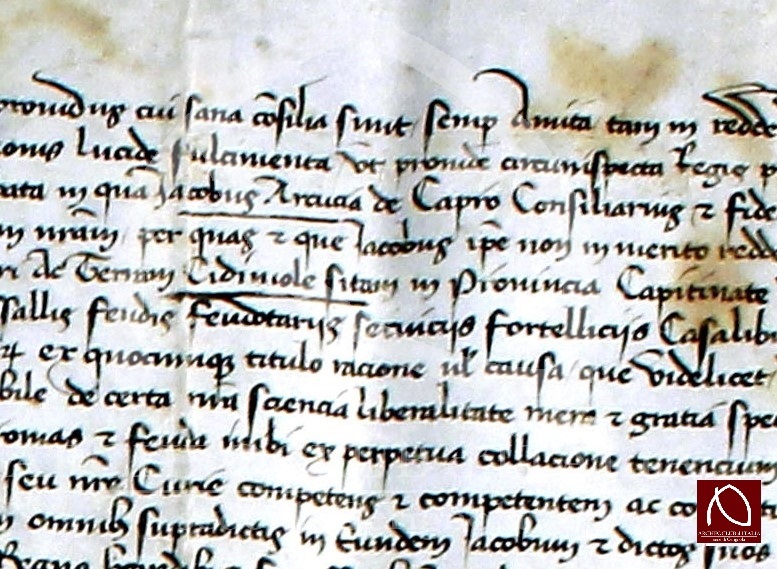 cui sana cōsilia sunt semp Amita tam in redde
lucide fulcimenta Vt proinde circumspecta Regis p
in quā Jacobus Arcucia de Capro Consiliarius ⁊ fide
m nrām per quas ⁊ que Jacobus ip̄e non inmerito redd
Ac Terram Cidiniole sitam in Provincia Capitinate
feudis feudotariis serviciis fortelliciis Casalibu
ex quocumque titulo racione ul̄ causa que videlicet
bile de certa nrā sciencia liberalitate mera ⁊ gratia spe
⁊ feuda inibi ex perpetua collacione tenencium
seu nrē Curie competens ⁊ competentem ac
omnibus supradictis in Eundem Jacobum ⁊ dictos suos
ARCHEOCLUB D'ITALIA